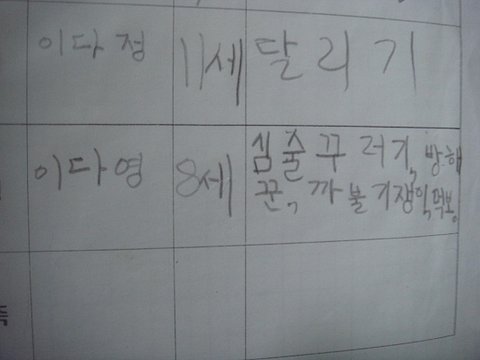 이다정 11세 달리기
이다영 8세 심술꾸러기, 방해
꾼, 까불기쟁이, 먹보